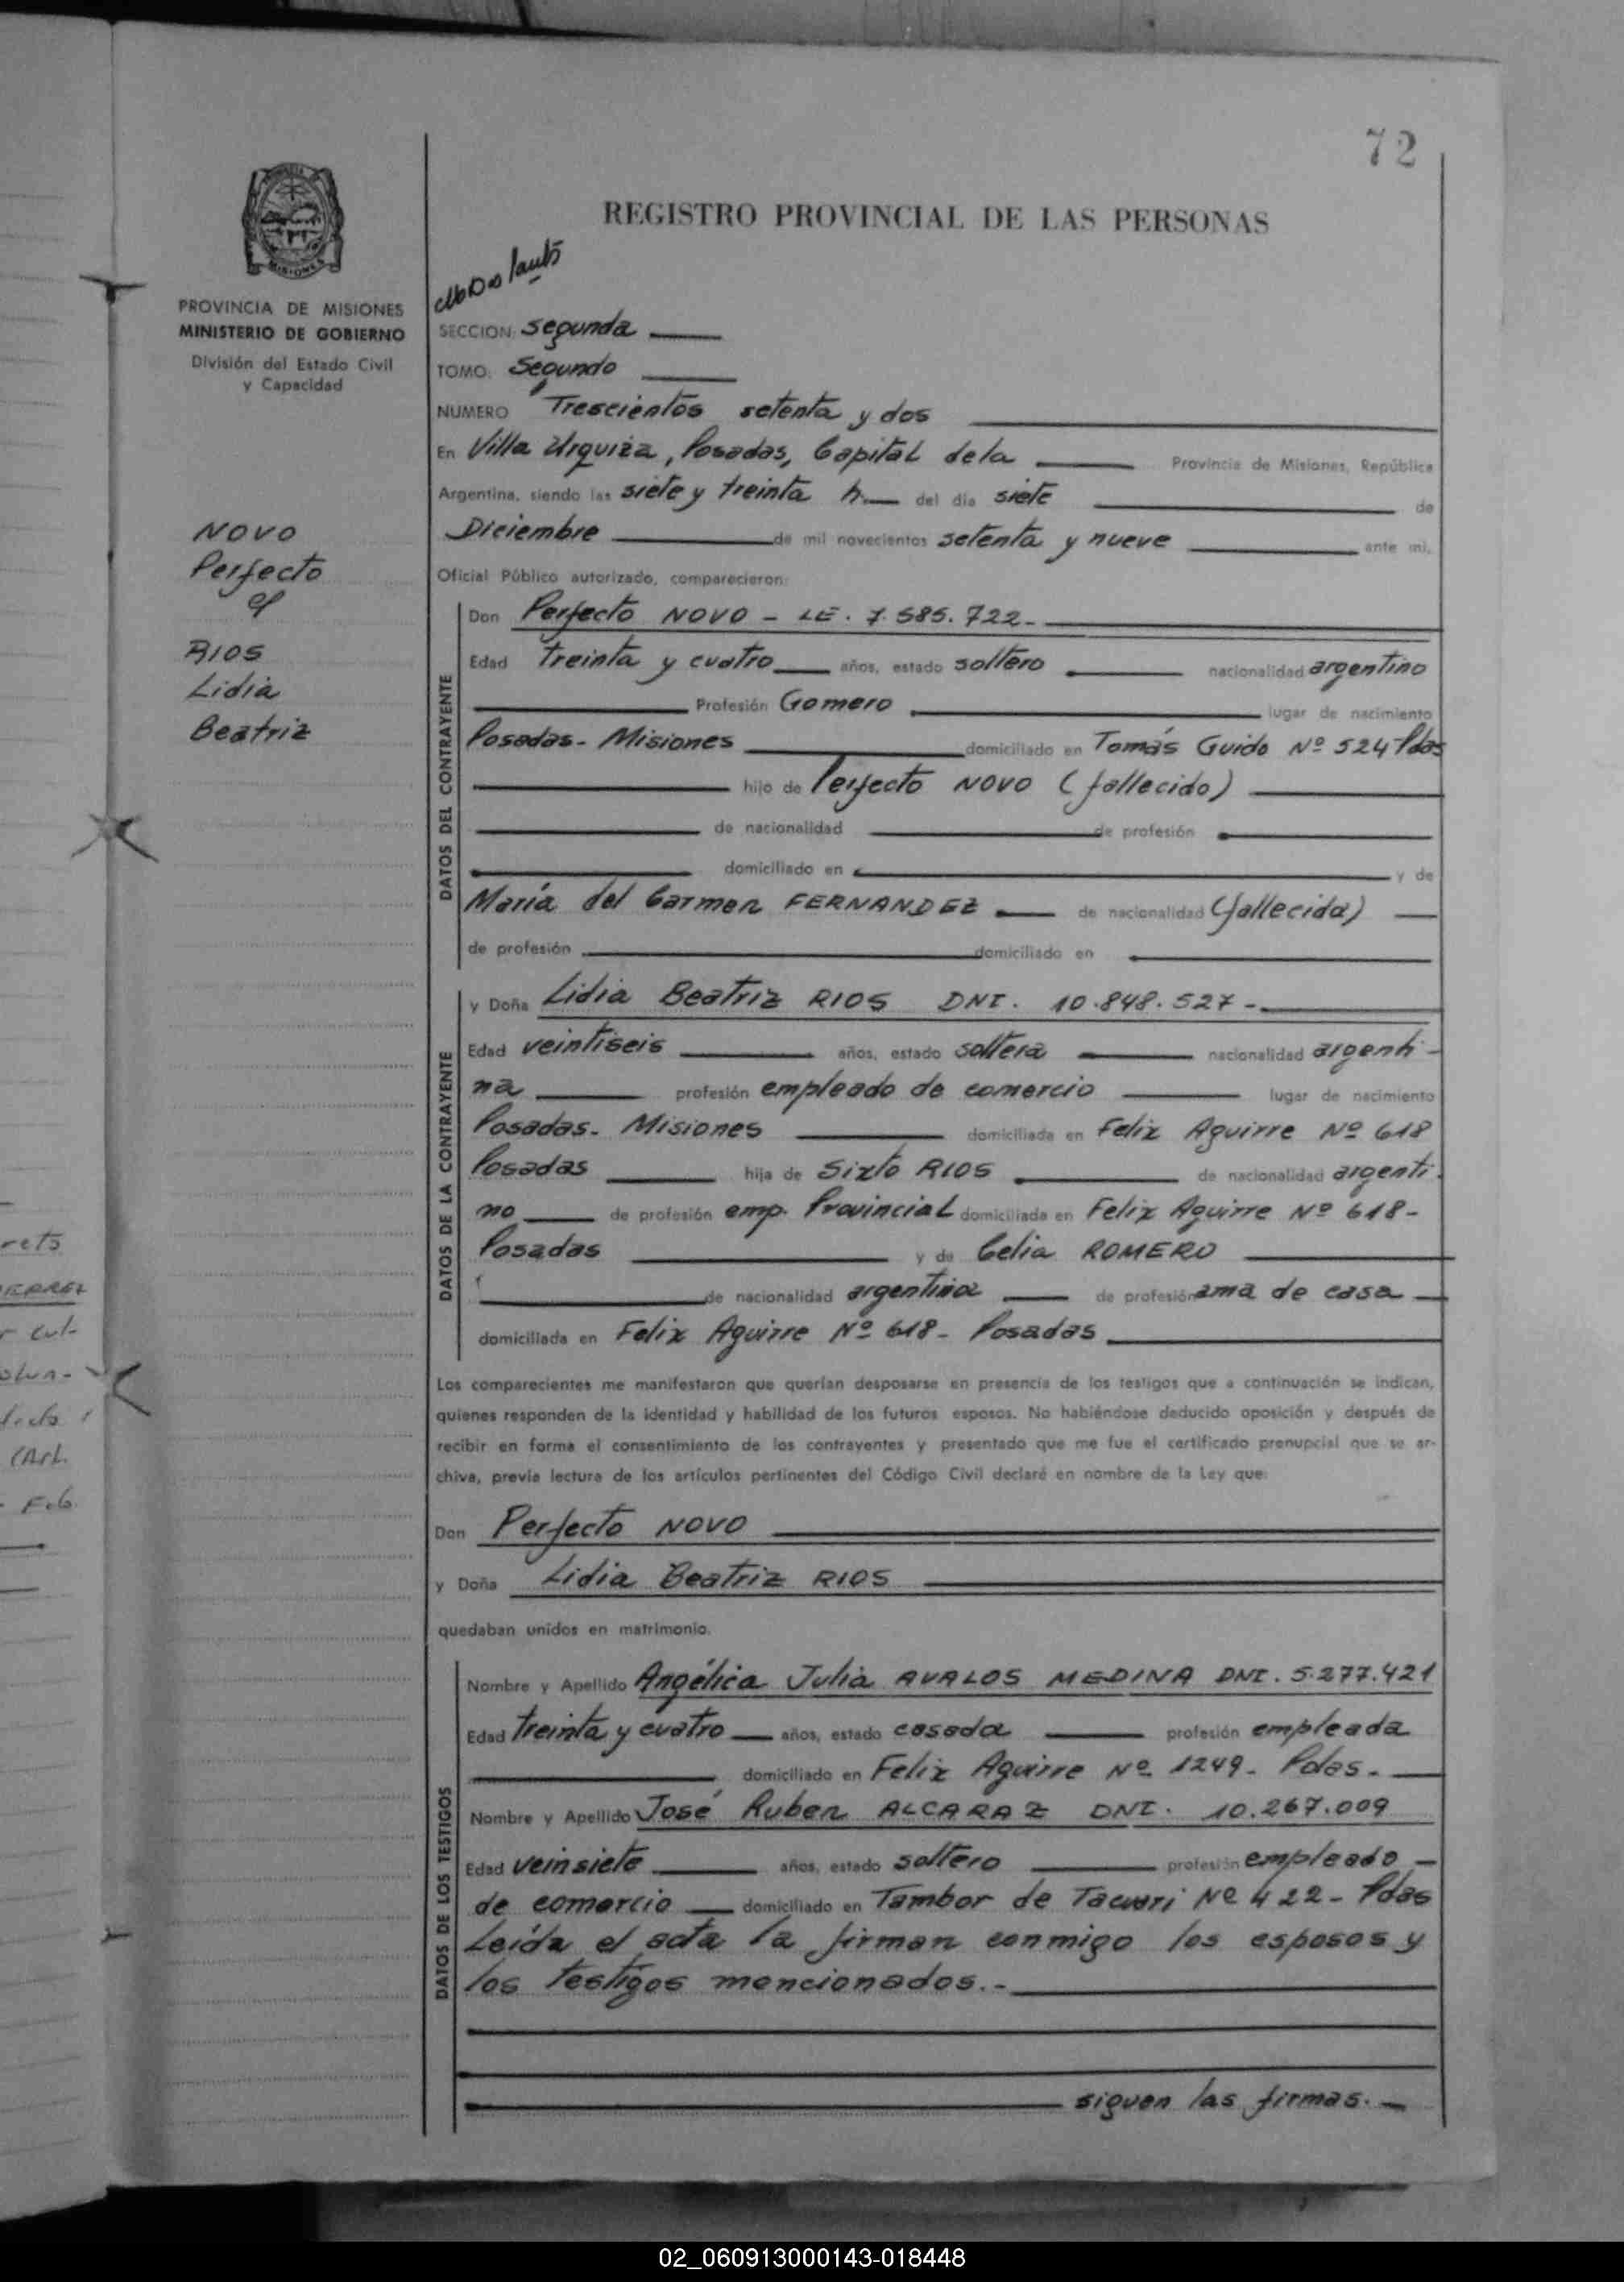 72
REGISTRO PROVINCIAL DE LAS PERSONAS
PROVINCIA DE MISIONES
MINISTERIO DE GOBIERNO
División del Estado Civil
y Capacidad
NOVO
Perfecto
RIOS
Lidia
Beatriz
SECCION: segunda
TOMO: Segundo
NUMERO Trescientos setenta y dos
En Villa Urquiza, Posadas, Capital de la Provincia de Misiones, República
Argentina, siendo las siete y treinta h. del día siete de
Diciembre de mil novecientos setenta y nueve ante mi,
Oficial Público autorizado, comparecieron:
DATOS DEL CONTRAYENTE
Don Perfecto NOVO - LE. 7.585.722-
Edad treinta y cuatro años, estado soltero nacionalidad argentino
Profesión Gomero lugar de nacimiento
Posadas- Misiones domiciliado en Tomás Guido Nº 524 Pdas
hijo de Perfecto NOVO (fallecido)
de nacionalidad de profesión
domiciliado en y de
María del Carmen FERNANDEZ de nacionalidad (fallecida)
de profesión domiciliado en
DATOS DE LA CONTRAYENTE
y Doña Lidia Beatriz RIOS DNI. 10.848.527-
Edad veintiseis años, estado soltera nacionalidad argenti-
na profesión empleado de comercio lugar de nacimiento
Posadas- Misiones domiciliada en Felix Aguirre Nº 618
Posadas hija de Sixto RIOS de nacionalidad argenti-
no de profesión emp. Provincial domiciliada en Felix Aguirre Nº 618-
Posadas y de Celia ROMERO
de nacionalidad argentina de profesión ama de casa
domiciliada en Felix Aguirre Nº 618- Posadas
Los comparecientes me manifestaron que querían desposarse en presencia de los testigos que a continuación se indican,
quienes responden de la identidad y habilidad de los futuros esposos. No habiéndose deducido oposición y después de
recibir en forma el consentimiento de los contrayentes y presentado que me fue el certificado prenupcial que se ar-
chiva, previa lectura de los artículos pertinentes del Código Civil declaré en nombre de la Ley que:
Don Perfecto NOVO
y Doña Lidia Beatriz RIOS
quedaban unidos en matrimonio.
DATOS DE LOS TESTIGOS
Nombre y Apellido Angélica Julia AVALOS MEDINA DNI. 5.277.421
Edad treinta y cuatro años, estado casada profesión empleada
domiciliado en Felix Aguirre Nº 1249- Pdas.-
Nombre y Apellido José Ruben ALCARAZ DNI. 10.267.009
Edad veinsiete años, estado soltero profesión empleado
de comercio domiciliado en Tambor de Tacuari Nº 422- Pdas
Leída el acta la firman conmigo los esposos y
los testigos mencionados.-
siguen las firmas.-
02_060913000143-018448